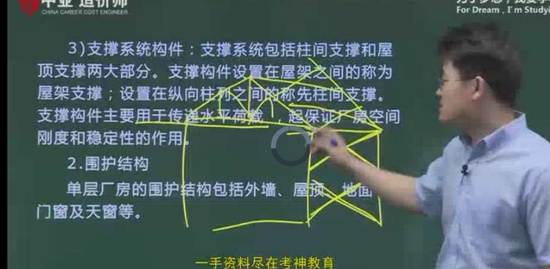 中业 造价师
CHINA CAREER COST ENGINEER
For Dream, I'm Study
3)支撑系统构件：支撑系统包括柱间支撑和屋
顶支撑两大部分。支撑构件设置在屋架之间的称为
屋架支撑；设置在纵向柱列之间的称先柱间支撑。
支撑构件主要用于传递水平荷载，起保证厂房空间
刚度和稳定性的作用。
2.围护结构
单层厂房的围护结构包括外墙、屋顶、地面
门窗及天窗等。
一手资料尽在考神教育